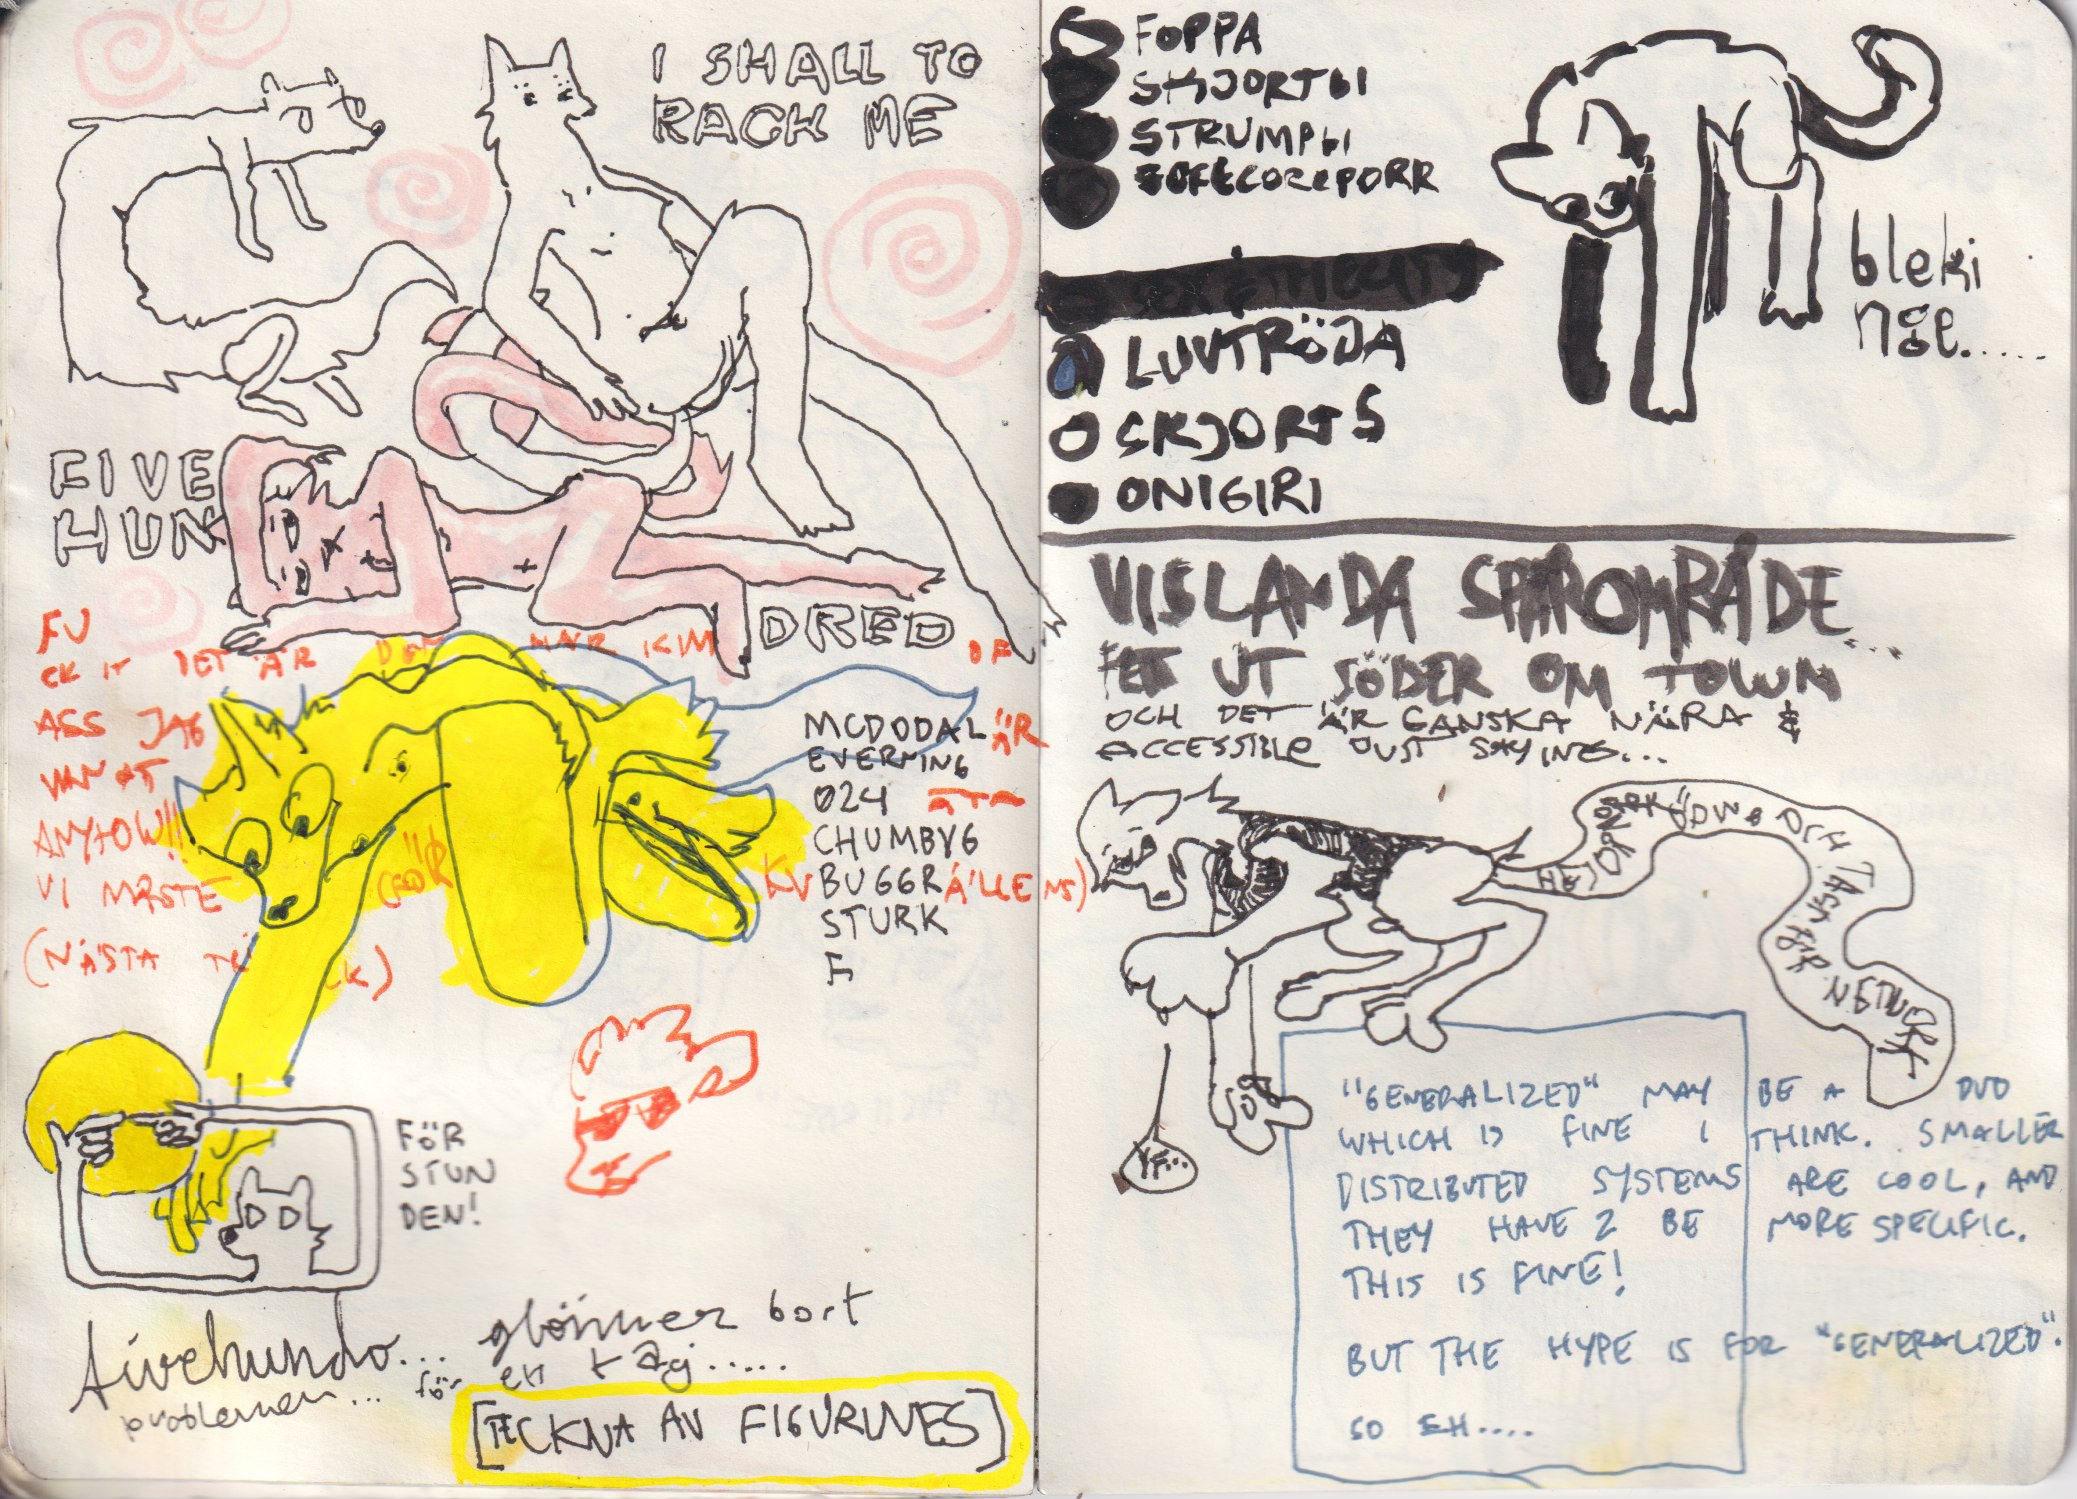 I SHALL TO
RACH ME
FIVE
HUN
DRED
FU
CK IT DET ÄR DEN HÄR KIM OF
ASS JAG ÄR
VAN AT ÄTA
ANYHOW!!
VI MÅSTE (FÖR KVÄLLENS)
(NÄSTA TRÄCK)
MCDODAL
EVERNING
024
CHUMBYG
BUGGR
STURK
F
FÖR
STUN
DEN!
fivehundo...
problemen... för
glömmer bort
en tag.....
[TECKNA AV FIGURINES]
FOPPA
SKJORTBI
STRUMPBI
SOFTCOREPORR
LUVTRÖJA
SKJORTS
ONIGIRI
bleki
nge.....
VISLANDA SPÅROMRÅDE...
FETT UT SÖDER OM TOWN
OCH DET ÄR GANSKA NÄRA &
ACCESSIBLE JUST SAYING...
HEJ
OCH TACK FÖR NETWORK
YF...
"GENERALIZED" MAY BE A DUD
WHICH IS FINE I THINK. SMALLER
DISTRIBUTED SYSTEMS ARE COOL, AND
THEY HAVE 2 BE MORE SPECIFIC.
THIS IS FINE!
BUT THE HYPE IS FOR "GENERALIZED".
SO EH....